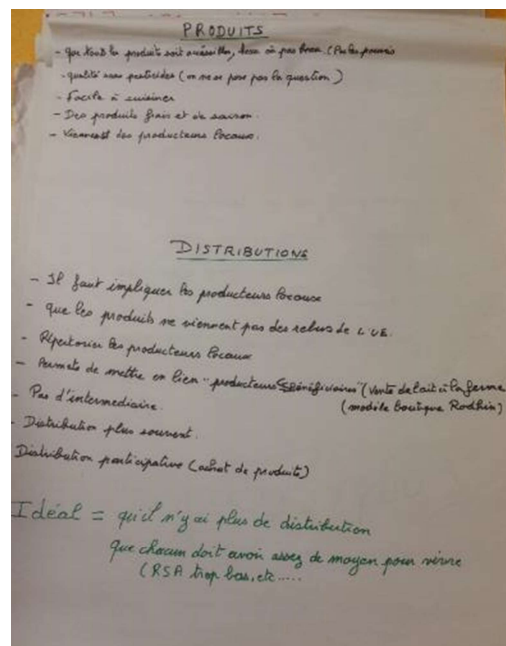 PRODUITS
- que tout les produits soit accessibles, beau ou pas beau. (Pas les pourris
- qualité sans pesticides (on ne se pose pas la question)
- Facile à cuisiner
- Des produits frais et de saison.
- Viennent des producteurs locaux.
DISTRIBUTIONS
- Il faut impliquer les producteurs locaux
- que les produits ne viennent pas des rebus de L'UE.
- Répertorier les producteurs locaux
- Permets de mettre en lien "producteurs Bénéficiaires" (vente de lait à la ferme
- Pas d'intermediaire. (modèle boutique Rodhin)
- Distribution plus souvent.
Distribution participative (achat de produits)
Idéal = qu'il n'y ai plus de distribution
que chacun doit avoir assez de moyen pour vivre
(RSA trop bas, etc.....